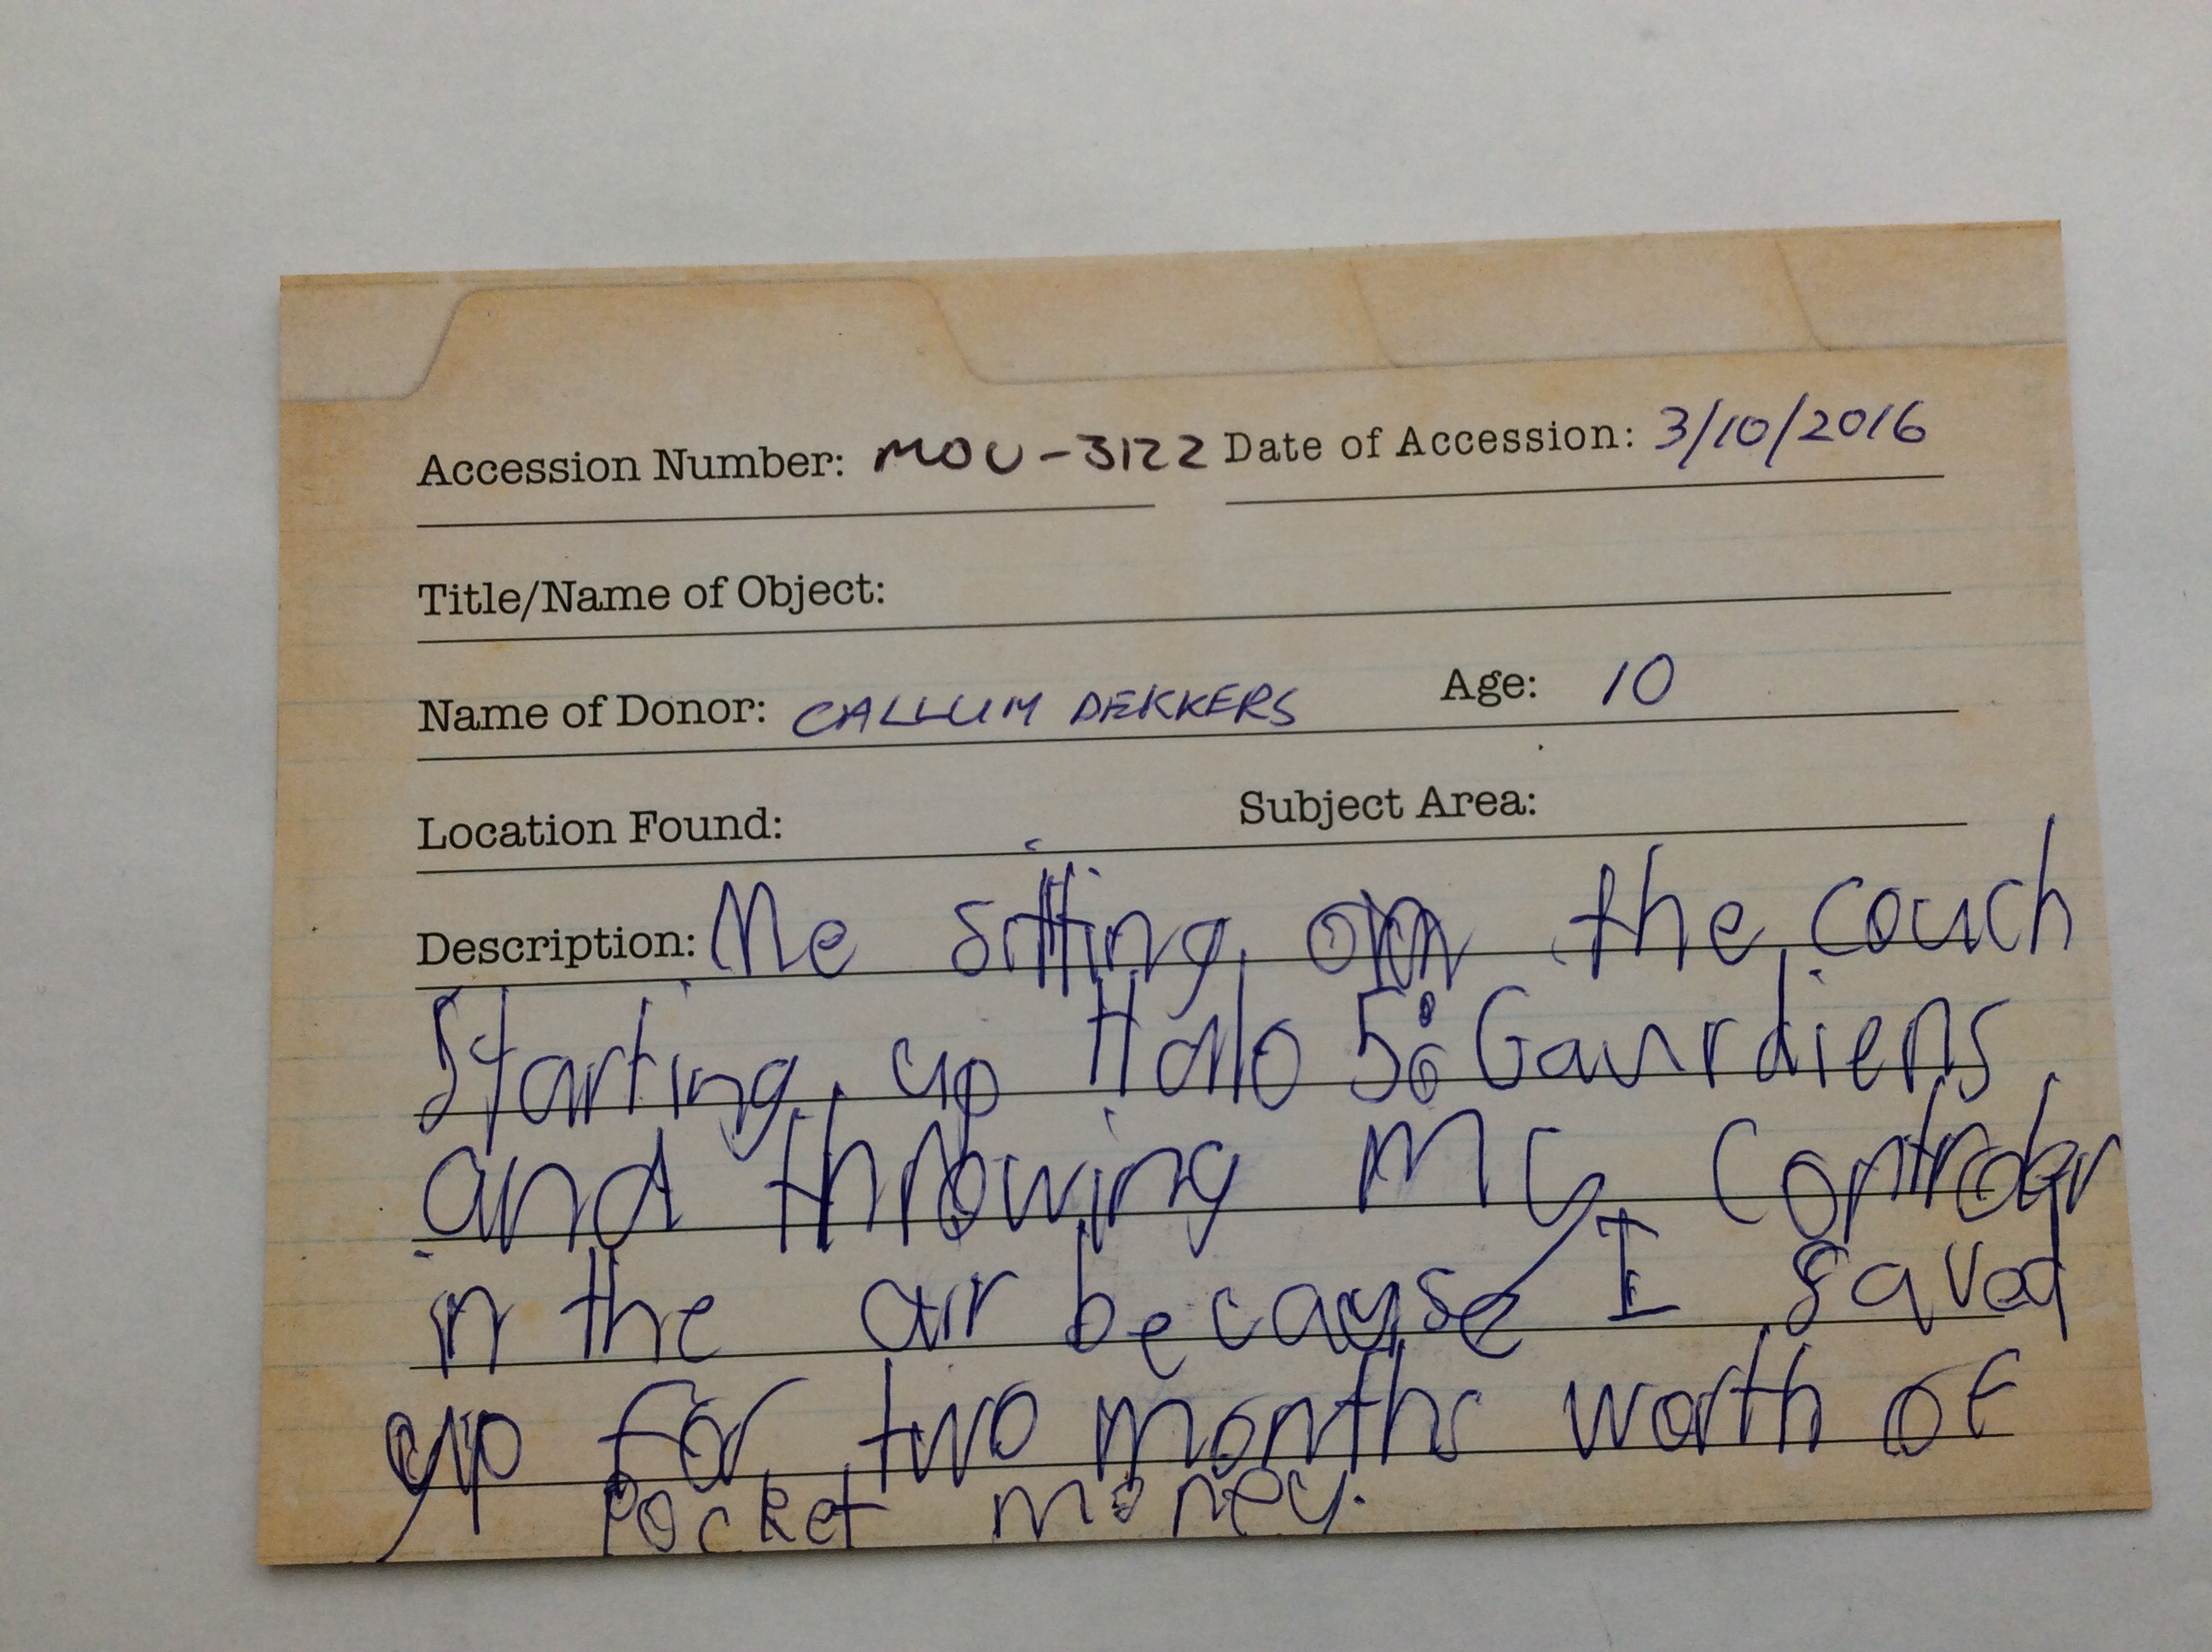 Accession Number: MOU-3122 Date of Accession: 3/10/2016
Title/Name of Object:
Name of Donor: CALLUM DEKKERS Age: 10
Location Found: Subject Area:
Description: Me sitting on the couch
Starting up Halo 5: Gaurdiens
and throwing my controler
in the air because I saved
up for two months worth of
Pocket money.